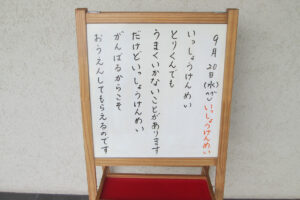 9月20日(水)いっしょうけんめい
いっしょうけんめい
とりくんでも
うまくいかないことがあります
だけどいっしょうけんめい
がんばるからこそ
おうえんしてもらえるのです